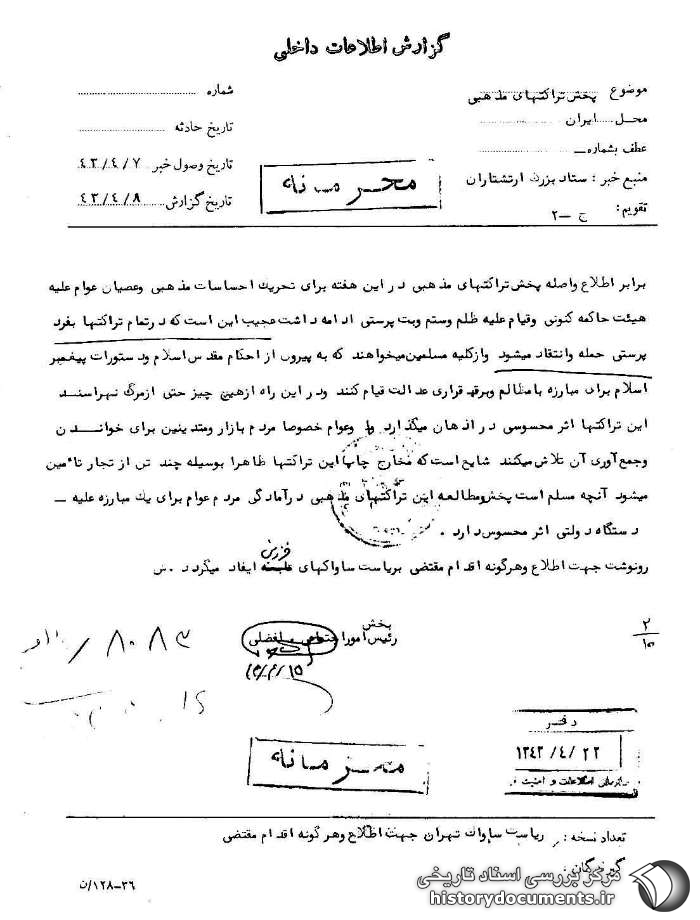 گزارش اطلاعات داخلی
موضوع پخش تراکتهای مذهبی
شماره
محل ایران
تاریخ حادثه
عطف بشماره
تاریخ وصول خبر ۴۳/۴/۷
منبع خبر : ستاد بزرگ ارتشتاران
تاریخ گزارش ۴۳/۴/۸
تقویم : ج -۲
محرمانه
برابر اطلاع واصله پخش تراکتهای مذهبی در این هفته برای تحریک احساسات مذهبی وعصیان عوام علیه
هیئت حاکمه کنونی وقیام علیه ظلم وستم وبت پرستی ادامه داشت عجیب این است که درتمام تراکتها بفرد
پرستی حمله وانتقاد میشود وازکلیه مسلمین میخواهند که به پیروی از احکام مقدس اسلام ودستورات پیغمبر
اسلام برای مبارزه بامظالم وبرقراری عدالت قیام کنند ودر این راه ازهیچ چیز حتی ازمرگ نهراسند
این تراکتها اثر محسوسی در اذهان میگذارد وعوام خصوصا مردم بازار ومتدینین برای خواندن
وجمع آوری آن تلاش میکنند شایع است که مخارج چاپ این تراکتها ظاهرا بوسیله چند تن از تجار تامین
میشود آنچه مسلم است پخش ومطالعه این تراکتهای مذهبی درآمادگی مردم عوام برای یک مبارزه علیه ـ
دستگاه دولتی اثر محسوس دارد .
رونوشت جهت اطلاع وهرگونه اقدام مقتضی بریاست ساواکهای ایفاد میگردد . ش
بخش
رئیس امور اجتماعی - افضلی
۲/۱۵
۸۰۸۳
دفتر
۱۳۴۳/۴/۲۲
سازمان اطلاعات و امنیت
محرمانه
تعداد نسخه : ریاست ساواک تهران جهت اطلاع وهرگونه اقدام مقتضی
گیرندگان :
۳۶-۱۲۸/ن
مرکز بررسی اسناد تاریخی
historydocuments.ir